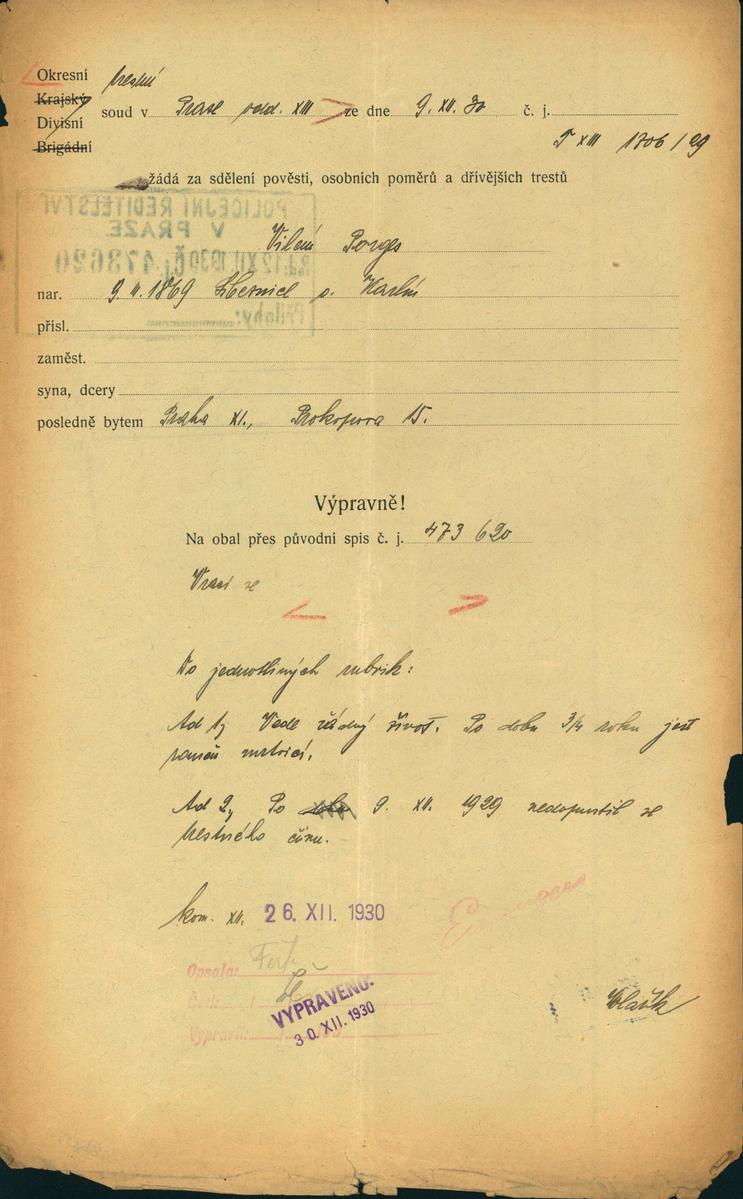 Okresní trestní
Krajský
soud v Praze odd. XIII ze dne 9. XII. 30 č. j.
Divisní
Brigádní
T XIII 1306/29
žádá za sdělení pověsti, osobních poměrů a dřívějších trestů
POLICEJNÍ ŘEDITELSTVÍ
V PRAZE
12 XII. 1930 Č. j. 473620
Přílohy:
Vilém Porges
nar. 9. II. 1869 o. Karlín
přísl.
zaměst.
syna, dcery
posledně bytem Praha XI., Prokopova 15.
Výpravně!
Na obal přes původní spis č. j. 473 620
Vrací se
Do jednotlivých rubrik:
Ad 1, Vede řádný život. Po dobu 3/4 roku jest
raněn mrtvicí.
Ad 2, Po 9. XII. 1929 nedopustil se
trestného činu.
kom. XII. 26. XII. 1930
Opsala:
Četl:
VYPRAVENO:
30. XII. 1930
Vypravil: